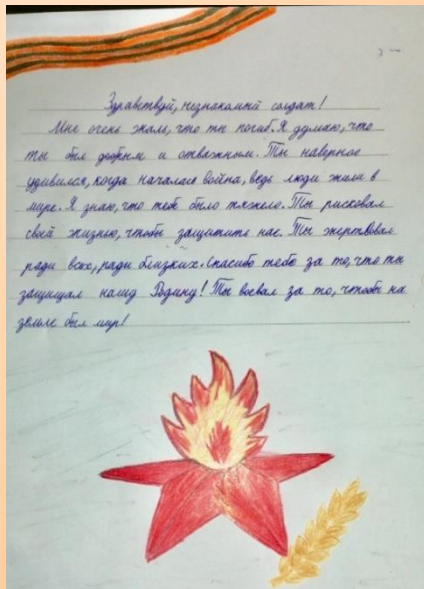 Здравствуй, незнакомый солдат!
Мне очень жаль, что ты погиб. Я думаю, что
ты был добрым и отважным. Ты наверное
удивился, когда началася война, ведь люди жили в
мире. Я знаю, что тебе было тяжело. Ты рисковал
свой жизнью, чтобы защитить нас. Ты жертвовал
ради всех, ради близких. Спасибо тебе за то, что ты
защищал нашу Родину! Ты воевал за то, чтобы на
земле был мир!